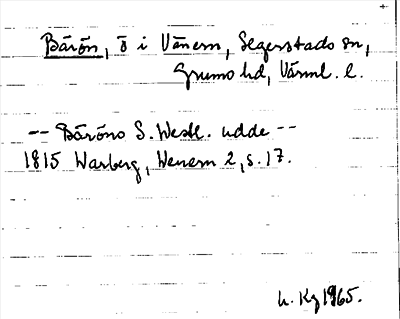 Bärön, ö i Vänern, Segerstads sn,
Grums hd, Värml. l.
-- Bäröns S. Westl. udde --
1815 Warberg, Wenern 2, s. 17.
1965.